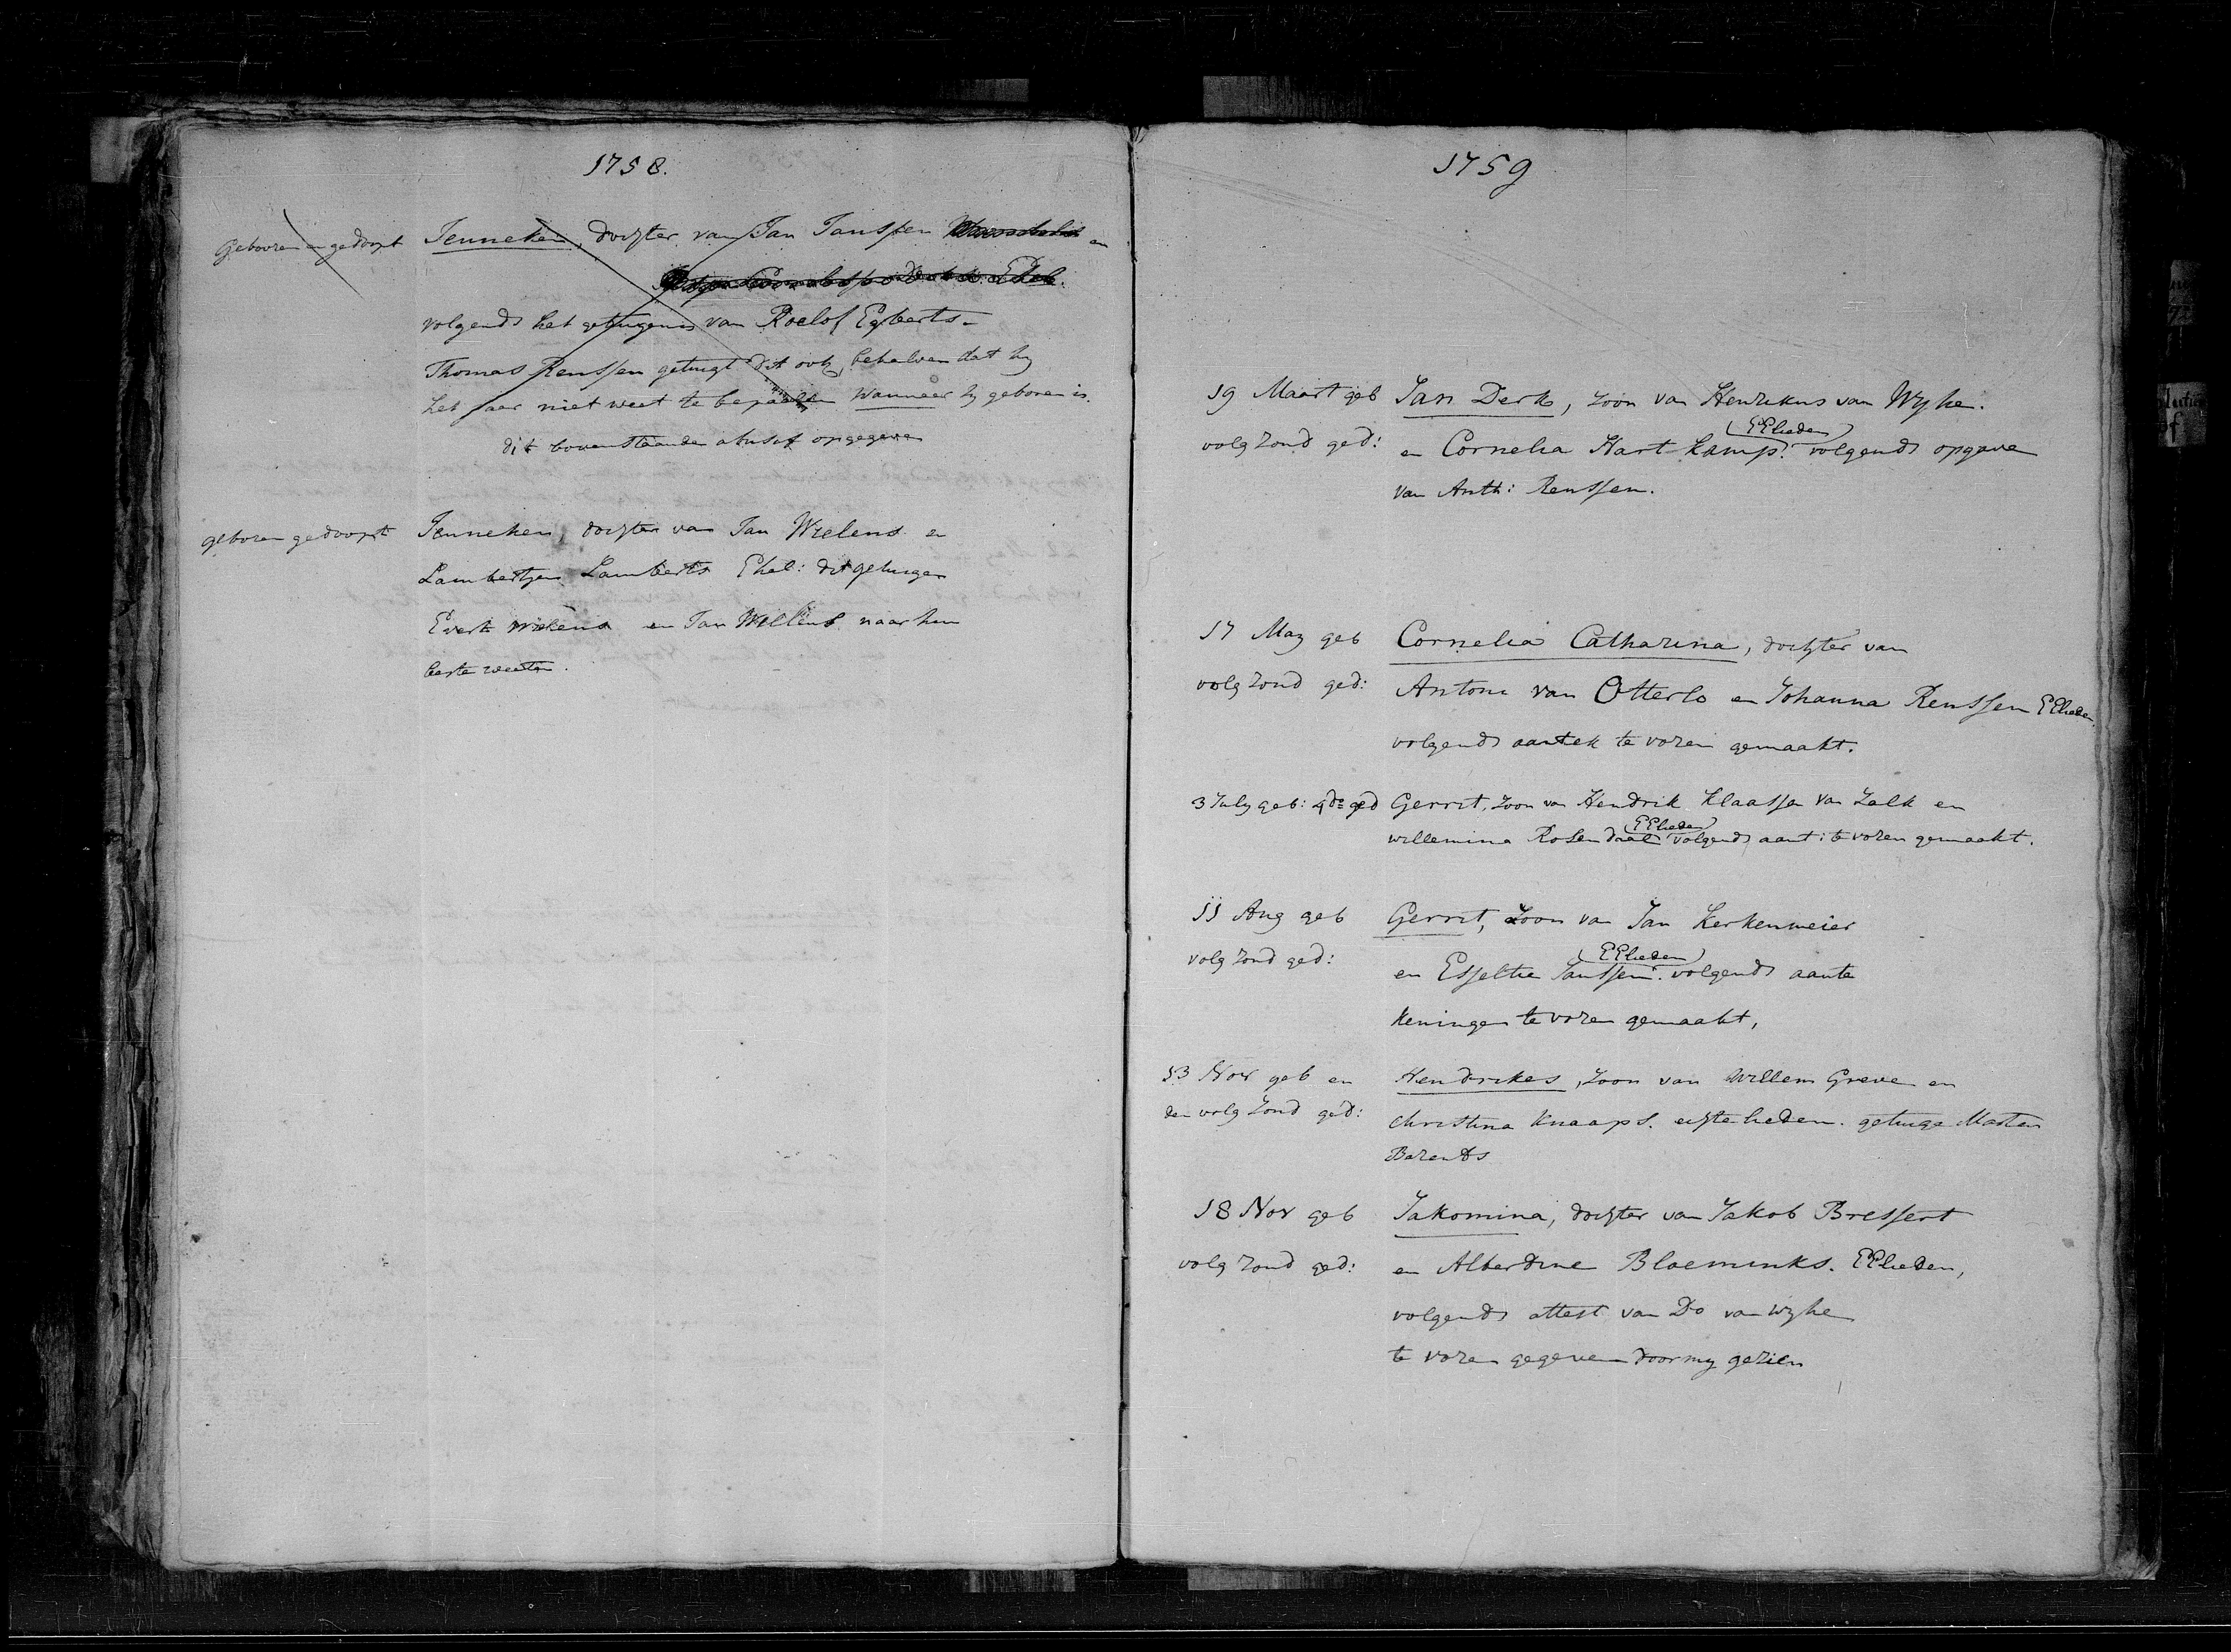 1758.
Gebooren en gedoopt Jenneken, dochter van Jan Janssen en
volgends het getuigenis van Roelof Egberts.
Thomas Renssen getuigt dit ook, behalven dat hy
het jaar niet weet te bepaalen wanneer hy geboren is.
dit bovenstaande abusif opgegeven
geboren gedoopt Jenneken, dochter van Jan Wielens en
Lambertjen Lamberts Ehel: dit getuigen
Evert Wielens en Jan Willems naar hun
beste weeten.
1759
19 Maart geb Jan Derk, zoon van Henrikus van Wyhe.
volg zond ged: en Cornelia Hart kamp. (EElieden) volgends opgave
van Anth: Renssen.
17 May geb Cornelia Catharina, dochter van
volg zond ged: Antoni van Otterlo en Johanna Renssen EElieden.
volgends aantek te voren gemaakt.
3 July geb: 4de ged Gerrit, zoon van Hendrik Klaassen van Zalk en
willemina Rosendael (EElieden) volgends aant: te voren gemaakt.
11 Aug geb Gerrit, zoon van Jan Kerkenmeier
volg zond ged: en Esseltie Janssen. (EElieden) volgends aante
keningen te voren gemaakt,
13 Nov geb en Hendrikes, zoon van Willem Greve en
den volg zond ged: christina Knaaps. echtelieden. getuige Marten
Barents
18 Nov geb Jakomina, dochter van Jakob Bressert
volg zond ged: en Alberdine Bloeminks. EElieden,
volgends attest van Do van wyhe
te voren gegeven door my gezien